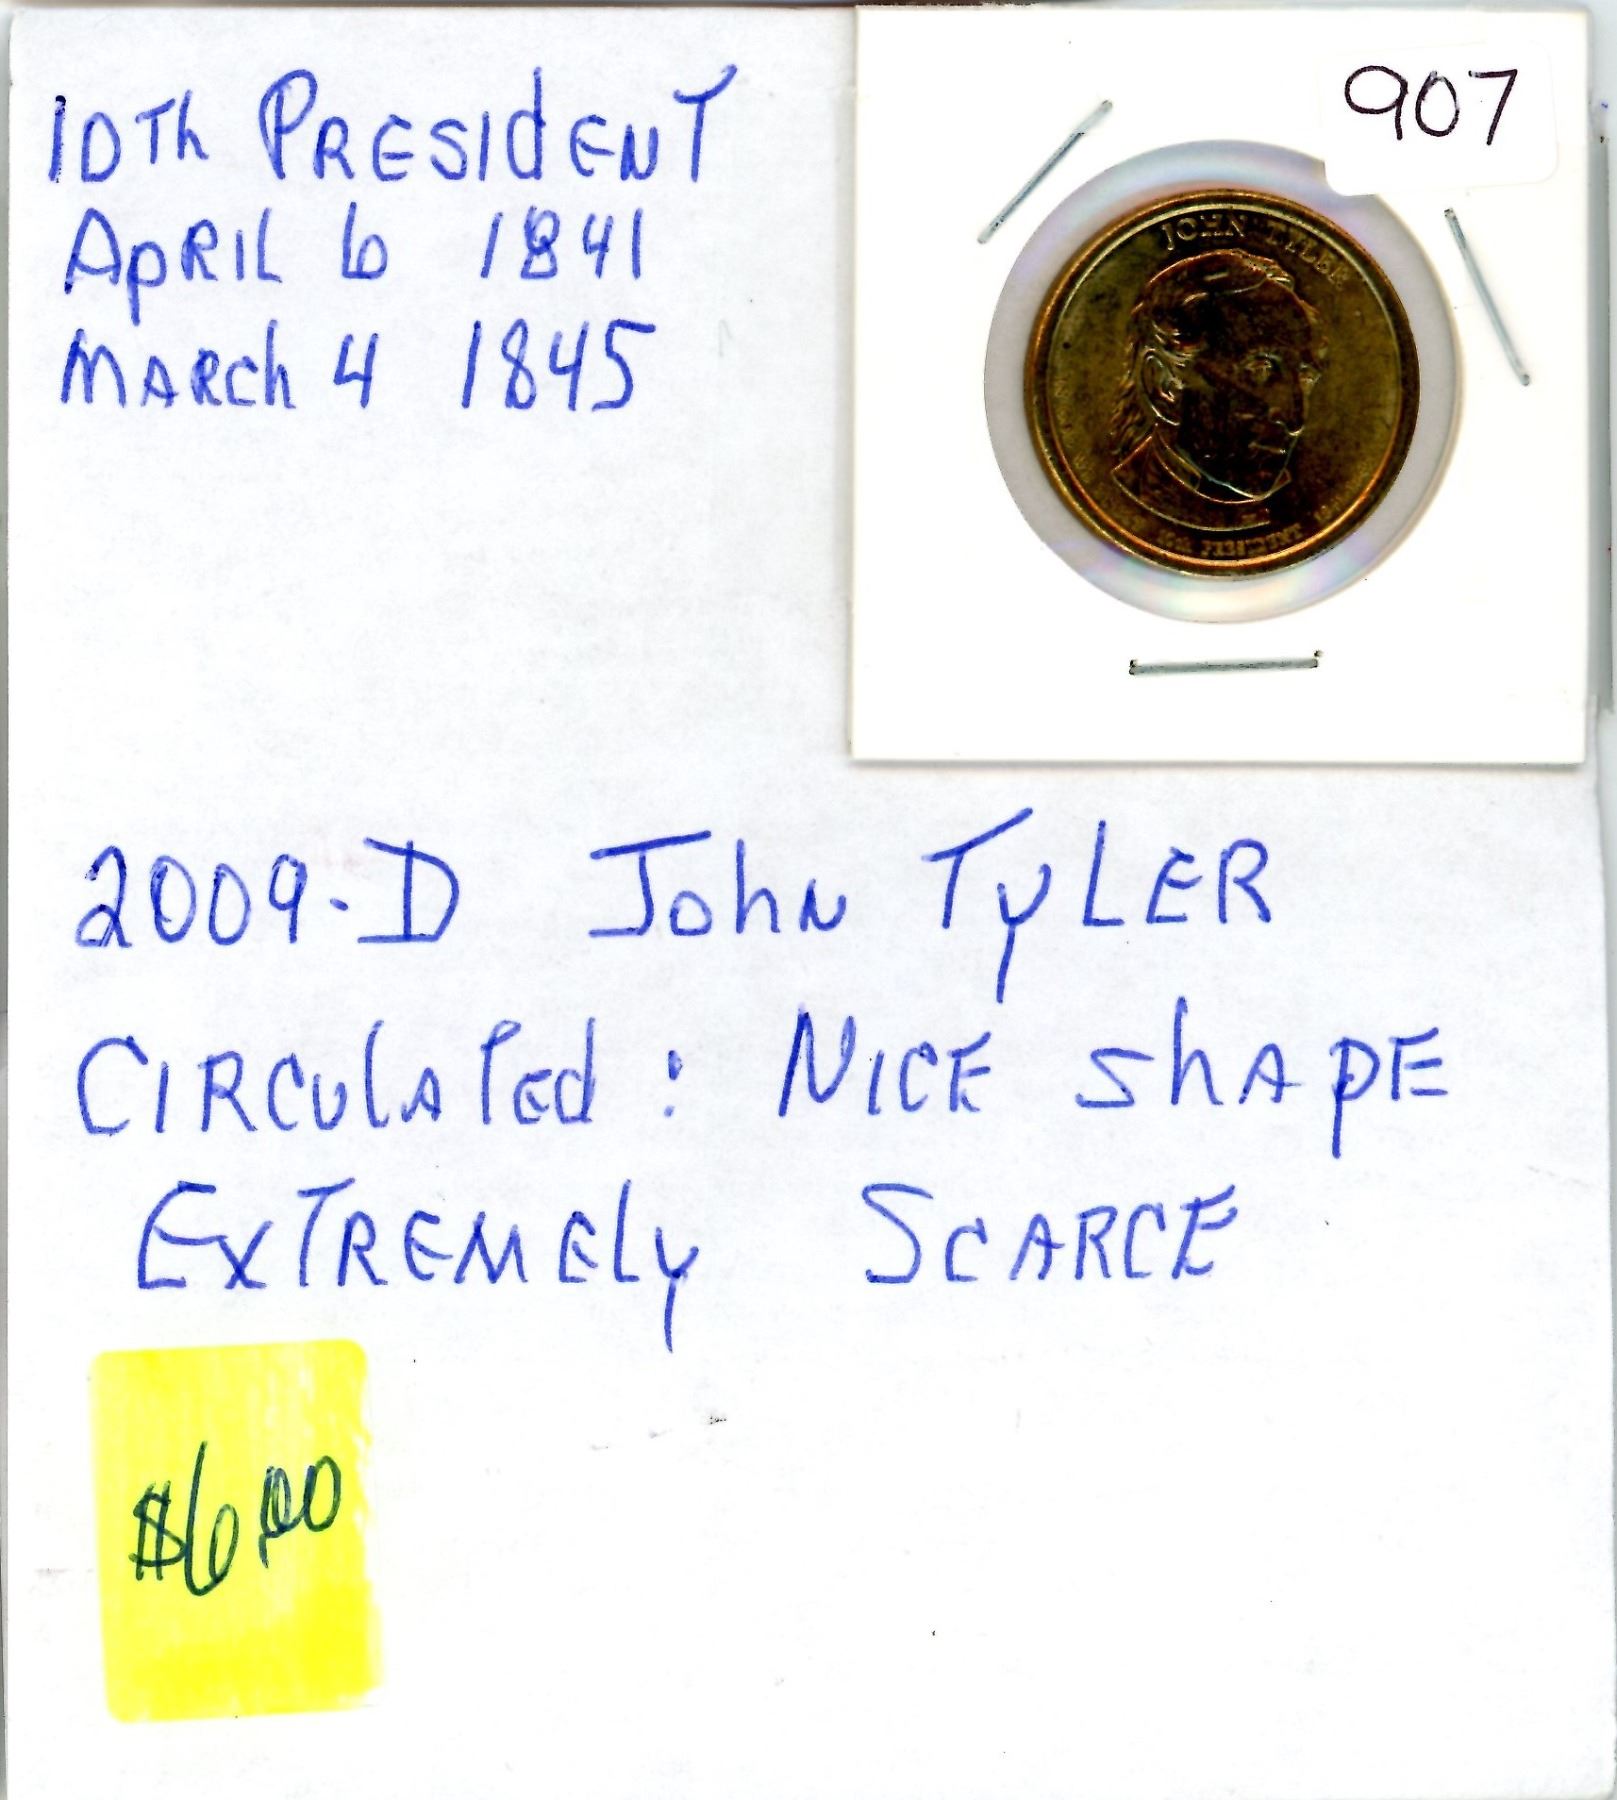 10Th PRESIdENT
APRIL 6 1841
MARCh 4 1845
907
JOHN TYLER
10th PRESIDENT
2009-D JohN TyLER
CIRCulATEd: NICE ShAPE
EXTREMEly SCARCE
$6.00